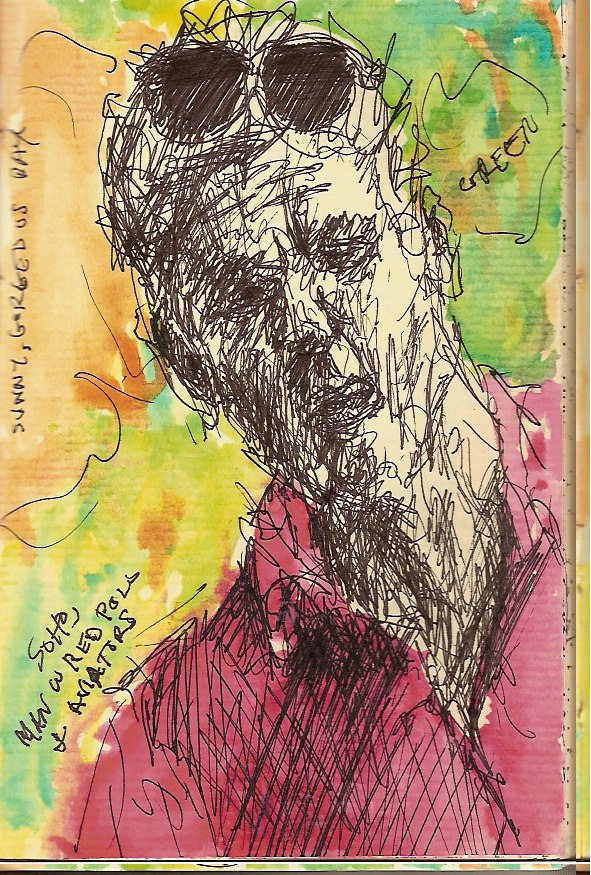 SUNNY, GORGEOUS DAY
GREEN
SOHO,
MAN W RED POLO
& AVIATORS